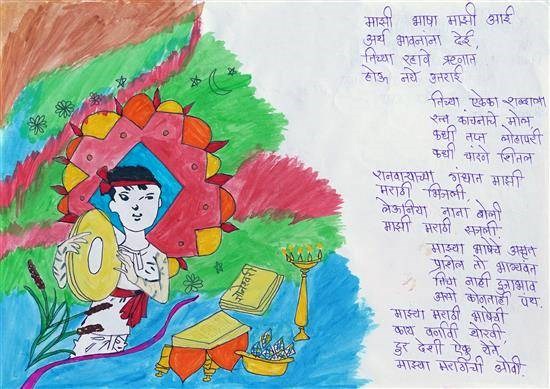 माझी भाषा माझी आई
अर्थ भावनांना देई,
तिच्या रहावे ऋणात
होऊ नये उतराई
तिच्या एकेका शब्दाला
रत्न कांचनाचे मोल
कधी तप्त लोहापरी
कधी चांदणे शितल
रानवाऱ्याच्या गंधात माझी
मराठी भिजली,
लेऊनिया नाना बोली
माझी मराठी सजली
माझ्या भाषेचे अमृत
प्राशेल तो भाग्यवंत
तिचा नाही दुजाभाव
असो कोणताही पंथ.
माझ्या मराठी भाषेची
काय वर्णावी थोरवी
दूर देशी ऐकू येते,
माझ्या मराठीची ओवी.